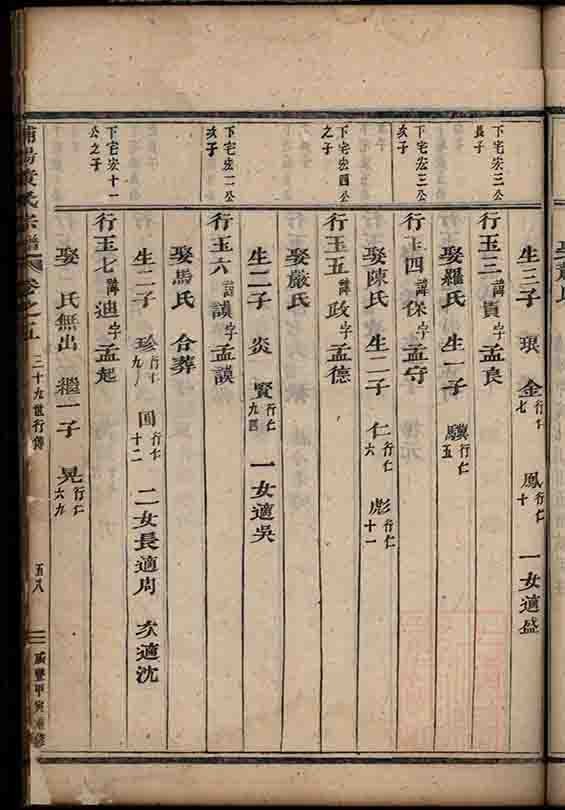 生三子 琪 金行仁七 鳳行仁十 一女適盛
下宅宏三公長子
行玉三諱貴字孟良
娶羅氏 生一子 驥行仁五
下宅宏三公亥子
行玉四諱保字孟守
娶陳氏 生二子 仁行仁六 彪行仁十一
下宅宏四公之子
行玉五諱政字孟德
娶嚴氏
生二子 炎 賢行仁九四 一女適吳
下宅宏二公亥子
行玉六諱謨字孟謨
娶馬氏 合葬
生二子 珍行仁九 国行仁十二 二女長適周 次適沈
下宅宏十一公之子
行玉七諱迪字孟起
娶 氏無出 繼一子 晃行仁六九
氏宗譜 卷之五 三十九世行傳 五八 咸豐甲寅重修